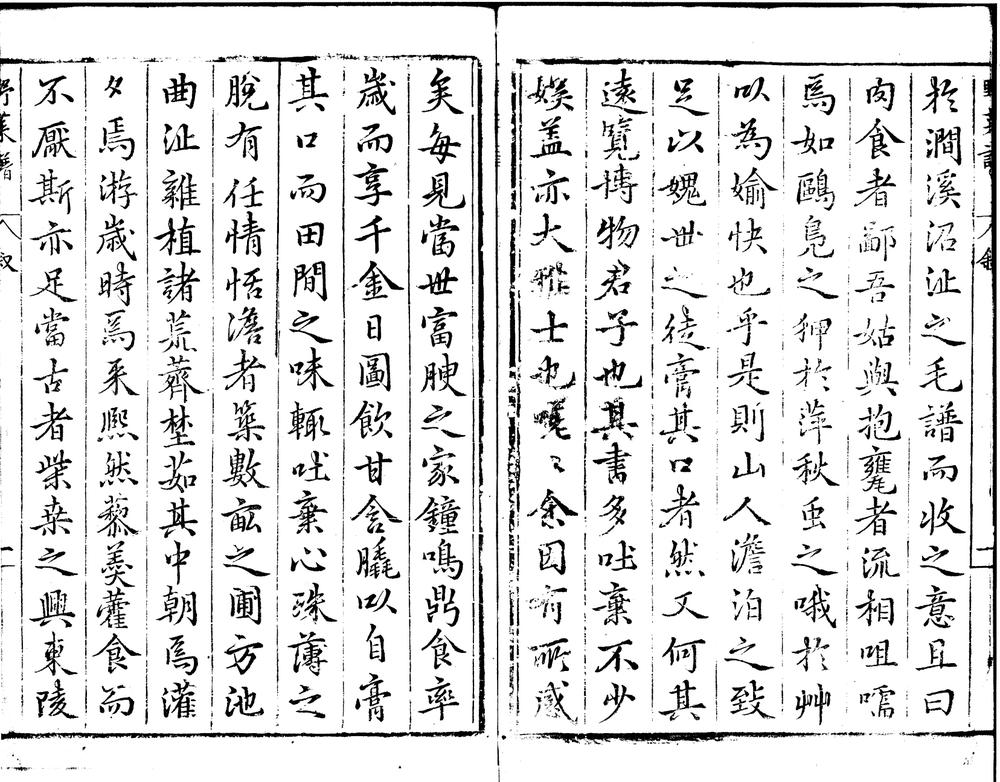 於澗溪沼沚之毛譜而收之意且曰
肉食者鄙吾姑與抱甕者流相咀嚅
焉如鷗鳧之狎於萍秋虫之哦於艸
以為媮快也乎是則山人澹泊之致
足以媿世之徒膏其口者然又何其
遠覽博物君子也其書多吐棄不少
娱盖亦大雅士也嘆〻余因有所感
矣每見當世富腴之家鐘鳴鼎食率
歲而享千金日圖飲甘含膬以自膏
其口而田間之味輒吐棄心殊薄之
脫有任情恬澹者築數畝之圃方池
曲沚雜植諸荒薺堃茹其中朝焉灌
夕焉游歲時焉采熙然藜羹藿食而
不厭斯亦足當古者柴桒之興東陵
野菜譜